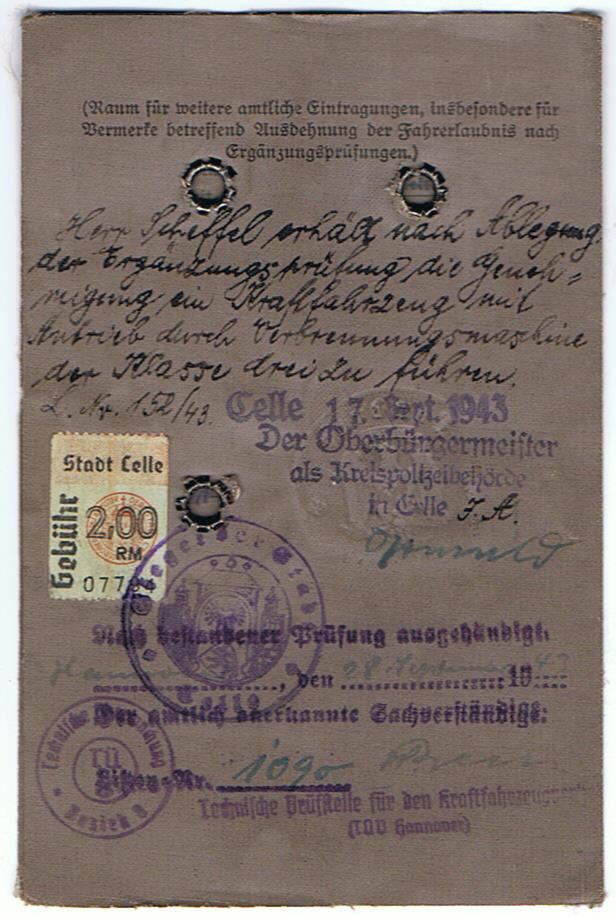 (Raum für weitere amtliche Eintragungen, insbesondere für
Vermerke betreffend Ausdehnung der Fahrerlaubnis nach
Ergänzungsprüfungen.)
Herr Scheffel erhält nach Ablegung
der Ergänzungsprüfung die Geneh=
migung ein Kraftfahrzeug mit
Antrieb durch Verbrennungsmaschine
der Klasse drei zu führen.
L. Nr. 152/43.
Celle 17. Sept. 1943
Der Oberbürgermeister
als Kreispolizeibehörde
in Celle J. A.
Stadt Celle
Gebühr
2,00
RM
077
Siegel der Stadt
Celle
Nach bestandener Prüfung ausgehändigt.
Hannover, den 28. September 1943
Der amtlich anerkannte Sachverständige:
Listen-Nr. 1090
Technische
TÜ
Bezirk 9
Technische Prüfstelle für den Kraftfahrzeug
(TÜV Hannover)